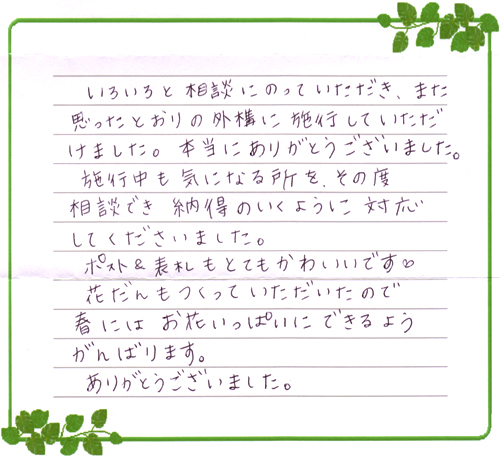 いろいろと相談にのっていただき、また
思ったとおりの外構に施行していただ
けました。本当にありがとうございました。
施行中も気になる所を、その度
相談でき納得のいくように対応
してくださいました。
ポスト&表札もとてもかわいいです♡
花だんもつくっていただいたので
春にはお花いっぱいにできるよう
がんばります。
ありがとうございました。